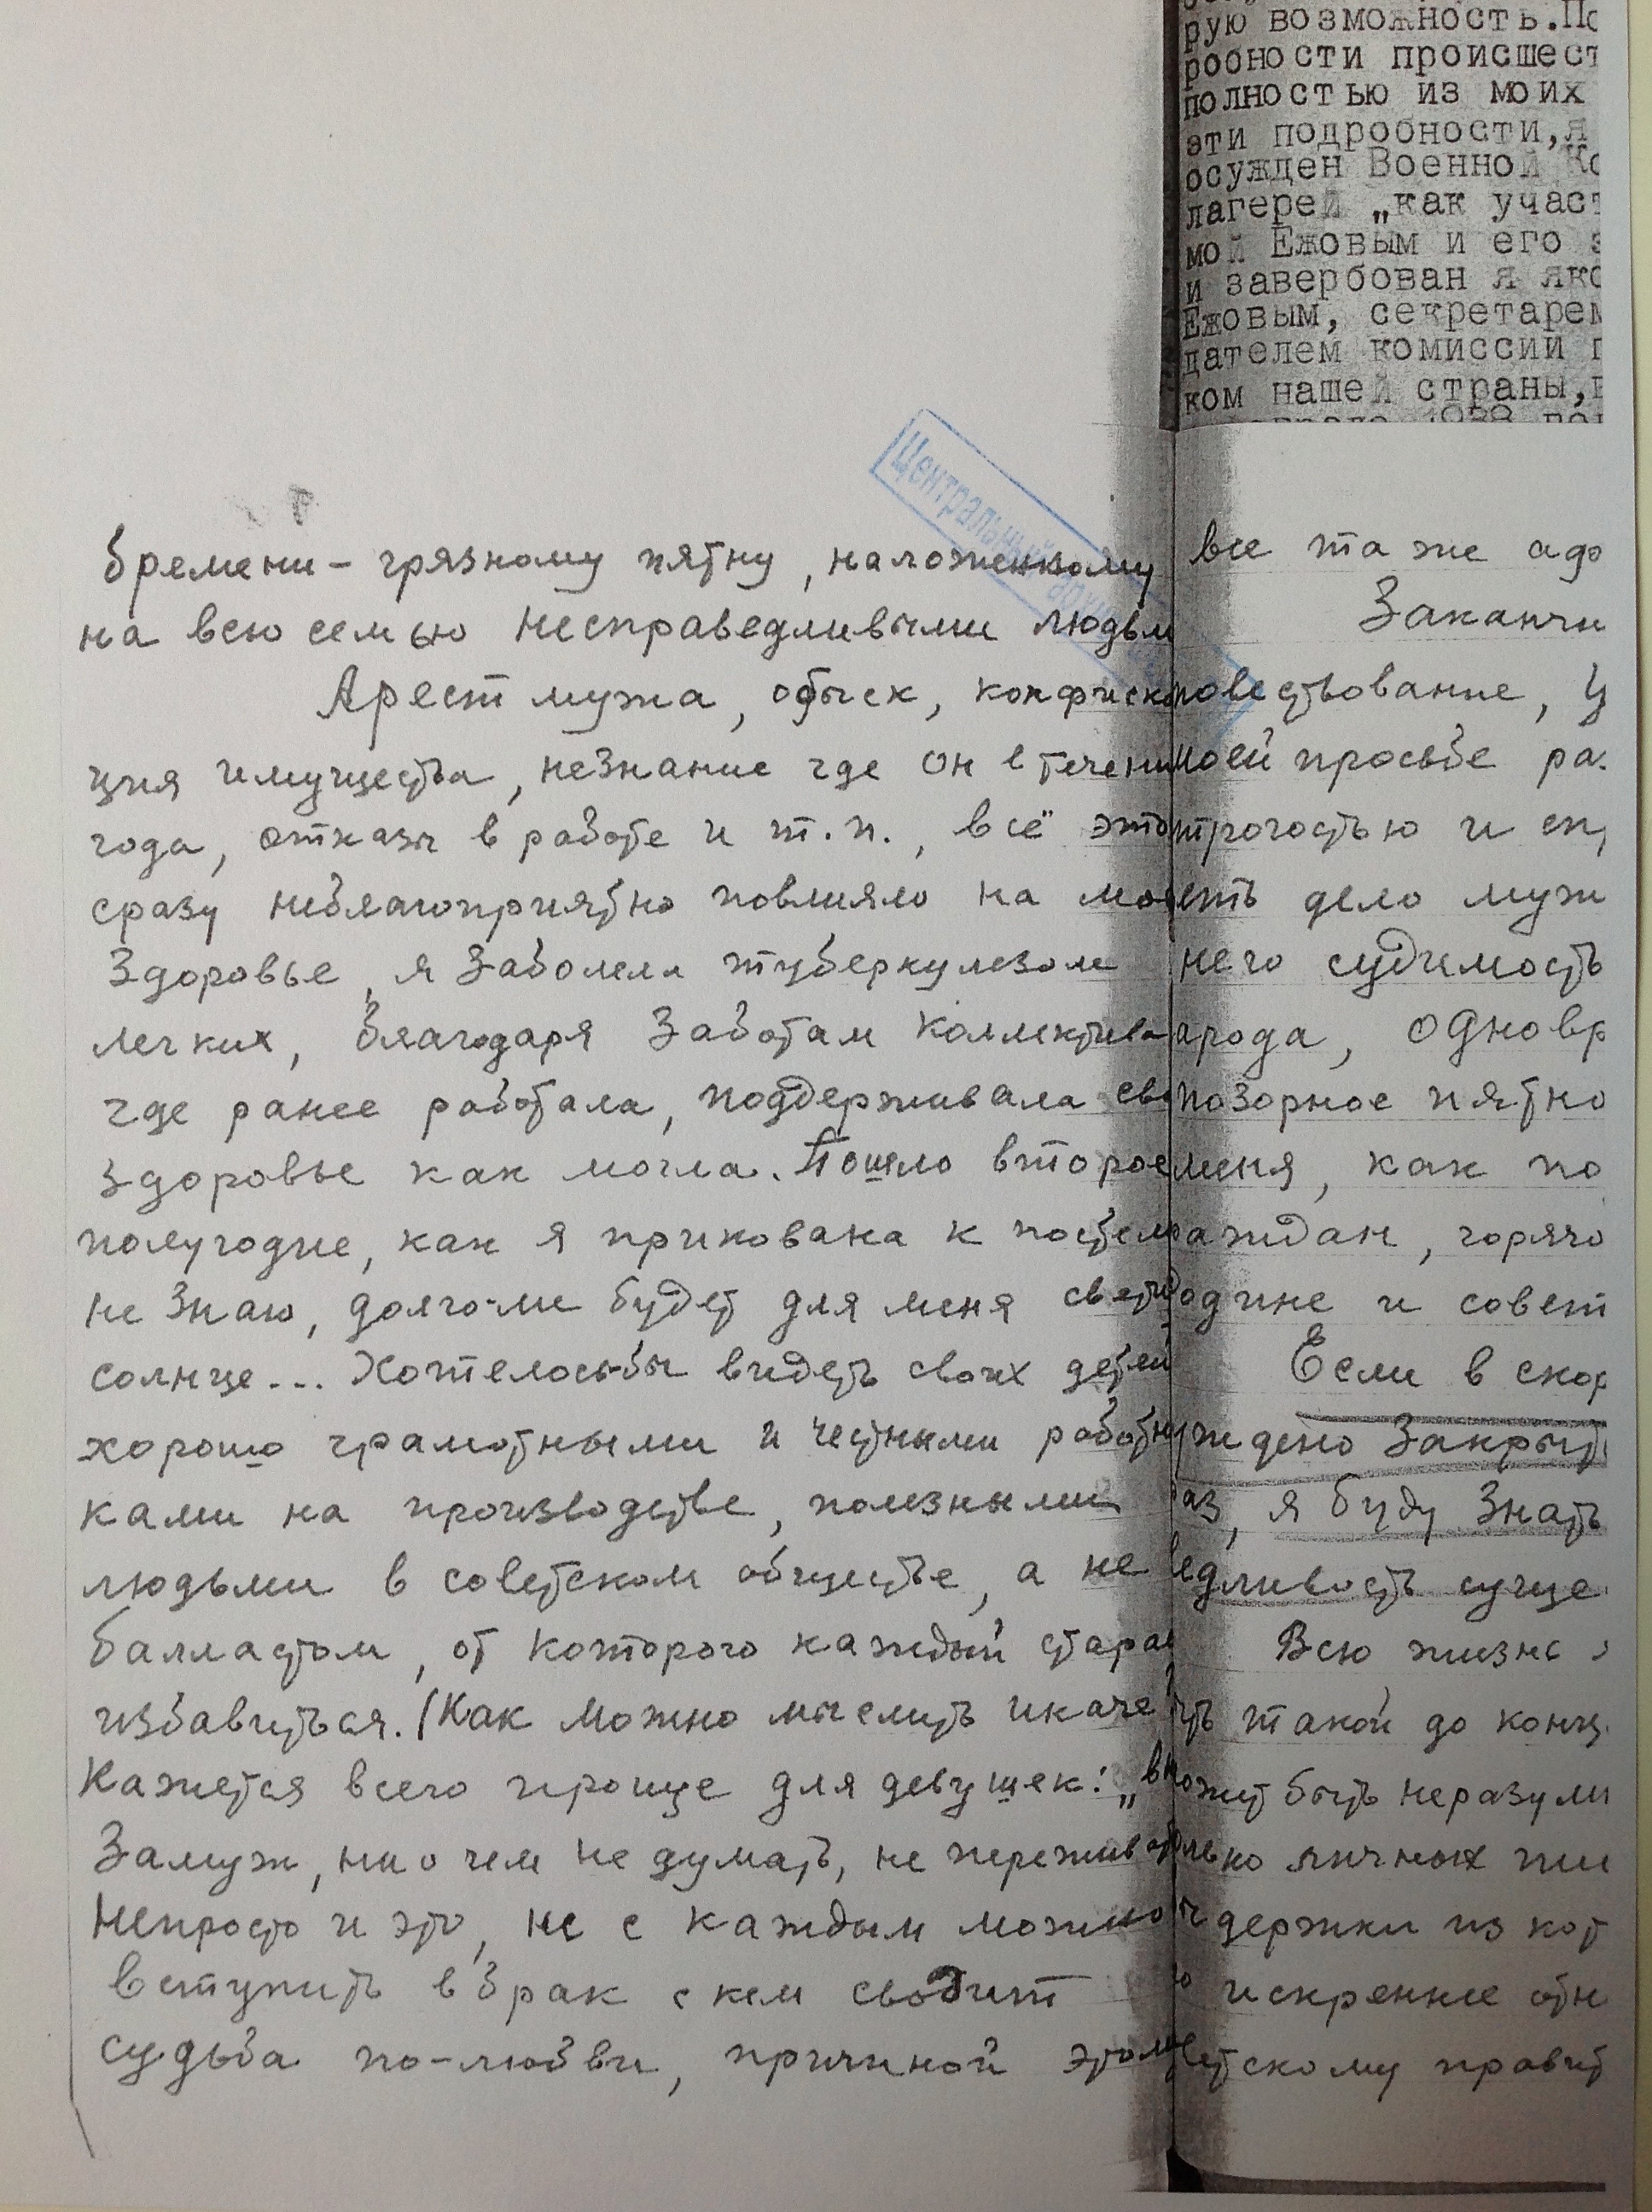 рую возможность.По
робности происшест
полностью из моих
эти подробности,я
осужден Военной Ко
лагерей „как участ
мой Ежовым и его з
и завербован я яко
Ежовым, секретарем
дателем комиссии п
ком нашей страны,в
Центральный
бремени – грязному пятну, наложенному
на всю семью несправедливыми людьм
Арест мужа, обыск, конфиска
ция имущества, незнание где он в течени
года, отказы в работе и т.п., всё это
сразу неблагоприятно повлияло на мое
здоровье, я заболела туберкулезом
легких, благодаря заботам коллектива
где ранее работала, поддерживала сво
здоровье как могла. Пошло второе
полугодие, как я прикована к постел
не знаю, долго-ли будет для меня светит
солнце... Хотелось-бы видеть своих детей
хорошо грамотными и честными работни
ками на производстве, полезными
людьми в советском обществе, а не
балластом, от которого каждый старае
избавиться. (Как можно мыслить иначе?
Кажется всего проще для девушек: „вы
замуж, ни о чем не думать, не пережив
Непросто и это, не с каждым можно
вступить в брак с кем сводит
судьба по-любви, причиной этом
все та же адо
Заканчи
повествование, у
моей просьбе ра
трогостью и сп
еть дело муж
него судимость
града, одновр
позорное пятно
меня, как по
раждан, горячо
одине и совет
Если в скор
уждено закрыт
раз, я буду знать
ведливость суще
Всю жизнь
ть такой до конц
может быть неразумн
только личных пи
держки из кот
искреннее отн
ветскому правит